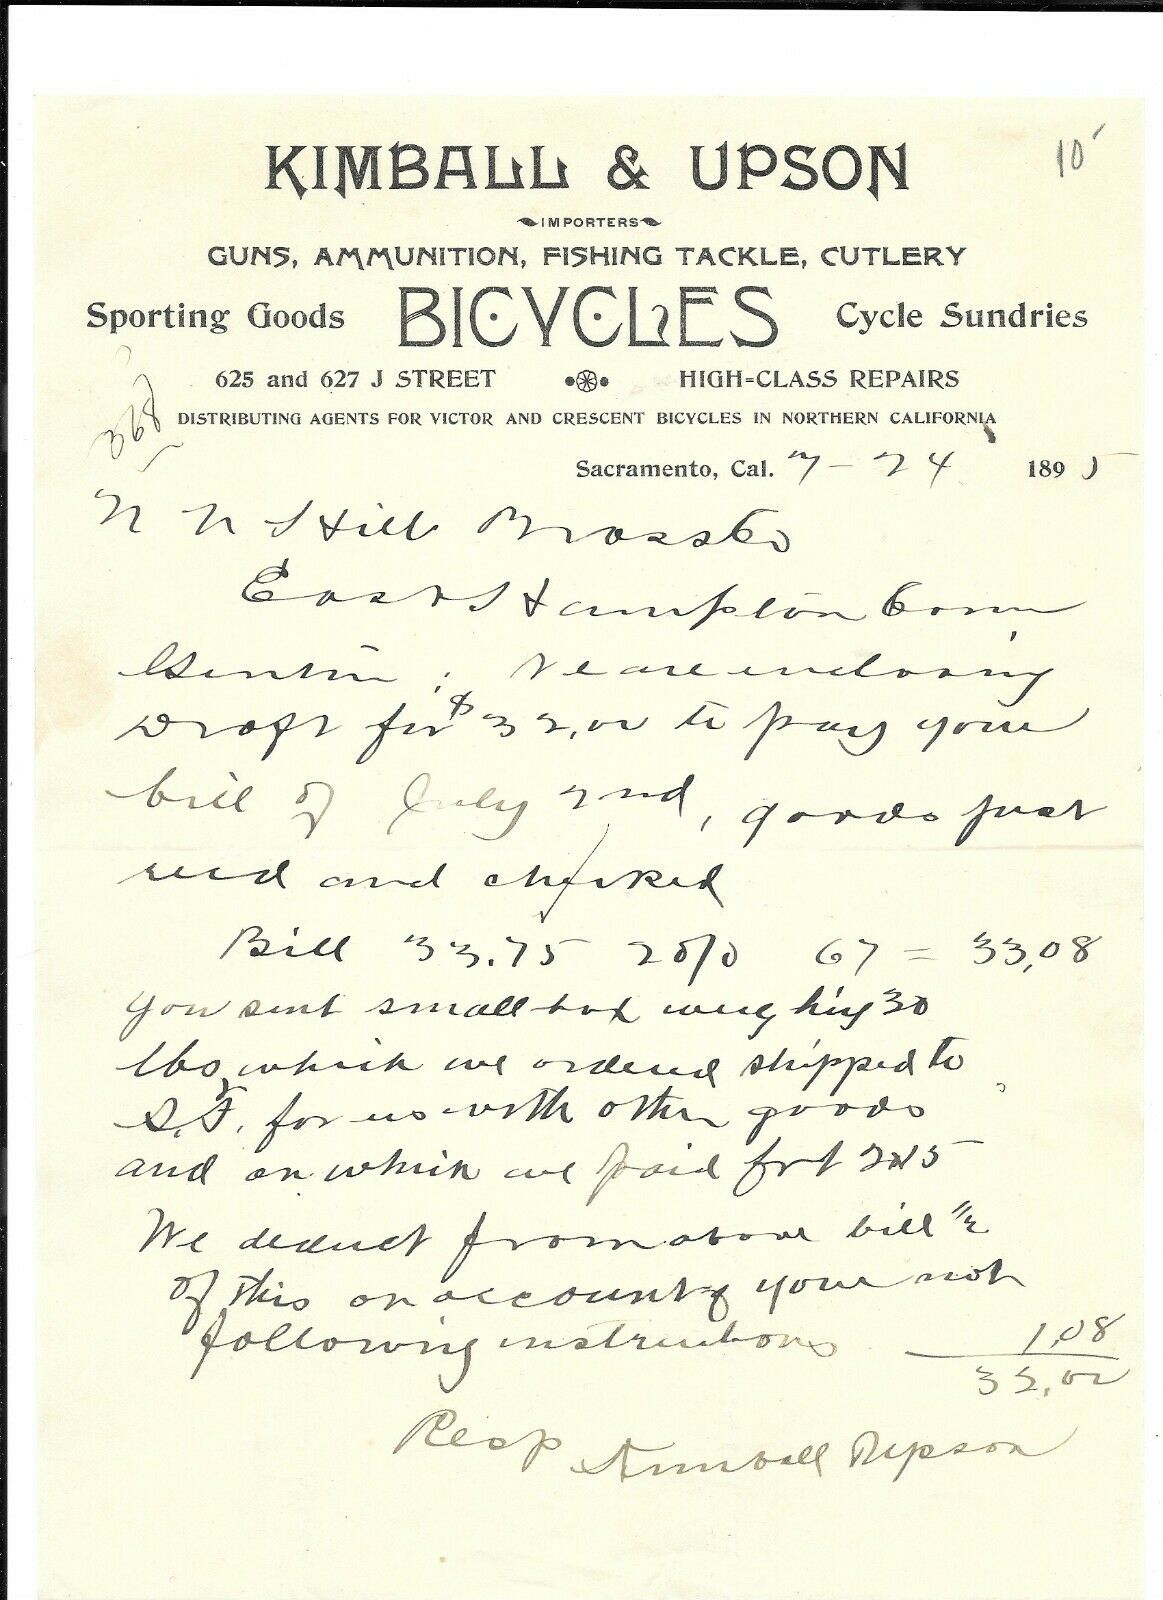 10
KIMBALL & UPSON
IMPORTERS
GUNS, AMMUNITION, FISHING TACKLE, CUTLERY
Sporting Goods BICYCLES Cycle Sundries
625 and 627 J STREET HIGH=CLASS REPAIRS
368
DISTRIBUTING AGENTS FOR VICTOR AND CRESCENT BICYCLES IN NORTHERN CALIFORNIA
Sacramento, Cal. 7-24 1895
N N Hill Brass Co
East Hampton Conn
Gentm: We are enclosing
Draft for $32.00 to pay your
bill of July 2nd, goods just
recd and checked
Bill 33.75 2 o/o 67 = 33.08
you sent small box weighing 30
lbs, which we ordered shipped to
S.F. for us with other goods
and on which we paid frt 2.15
We deduct from above bill 1/2
of this on account of your not
following instructions 1.08
32.00
Resp Kimball & Upson